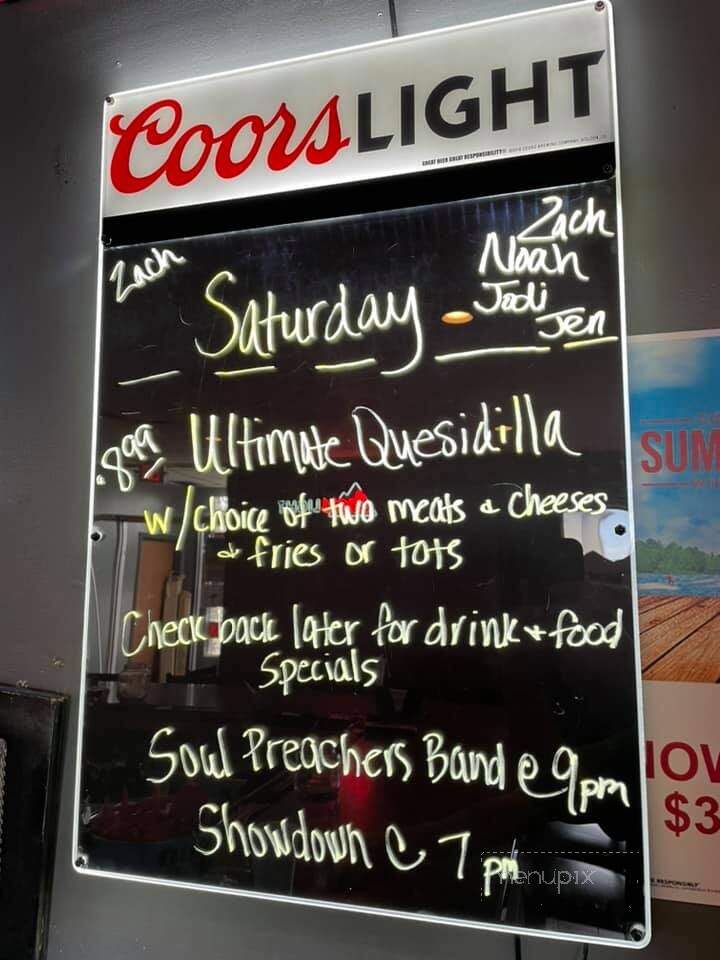 Coors LIGHT
GREAT BEER GREAT RESPONSIBILITY®
Zach
Zach
Noah
Jodi
Jen
Saturday
8.99 Ultimate Quesidilla
w/choice of two meats & cheeses
& fries or tots
Check back later for drink + food
specials
Soul Preachers Band @ 9pm
Showdown @ 7 pm
menupix
SUM
$3